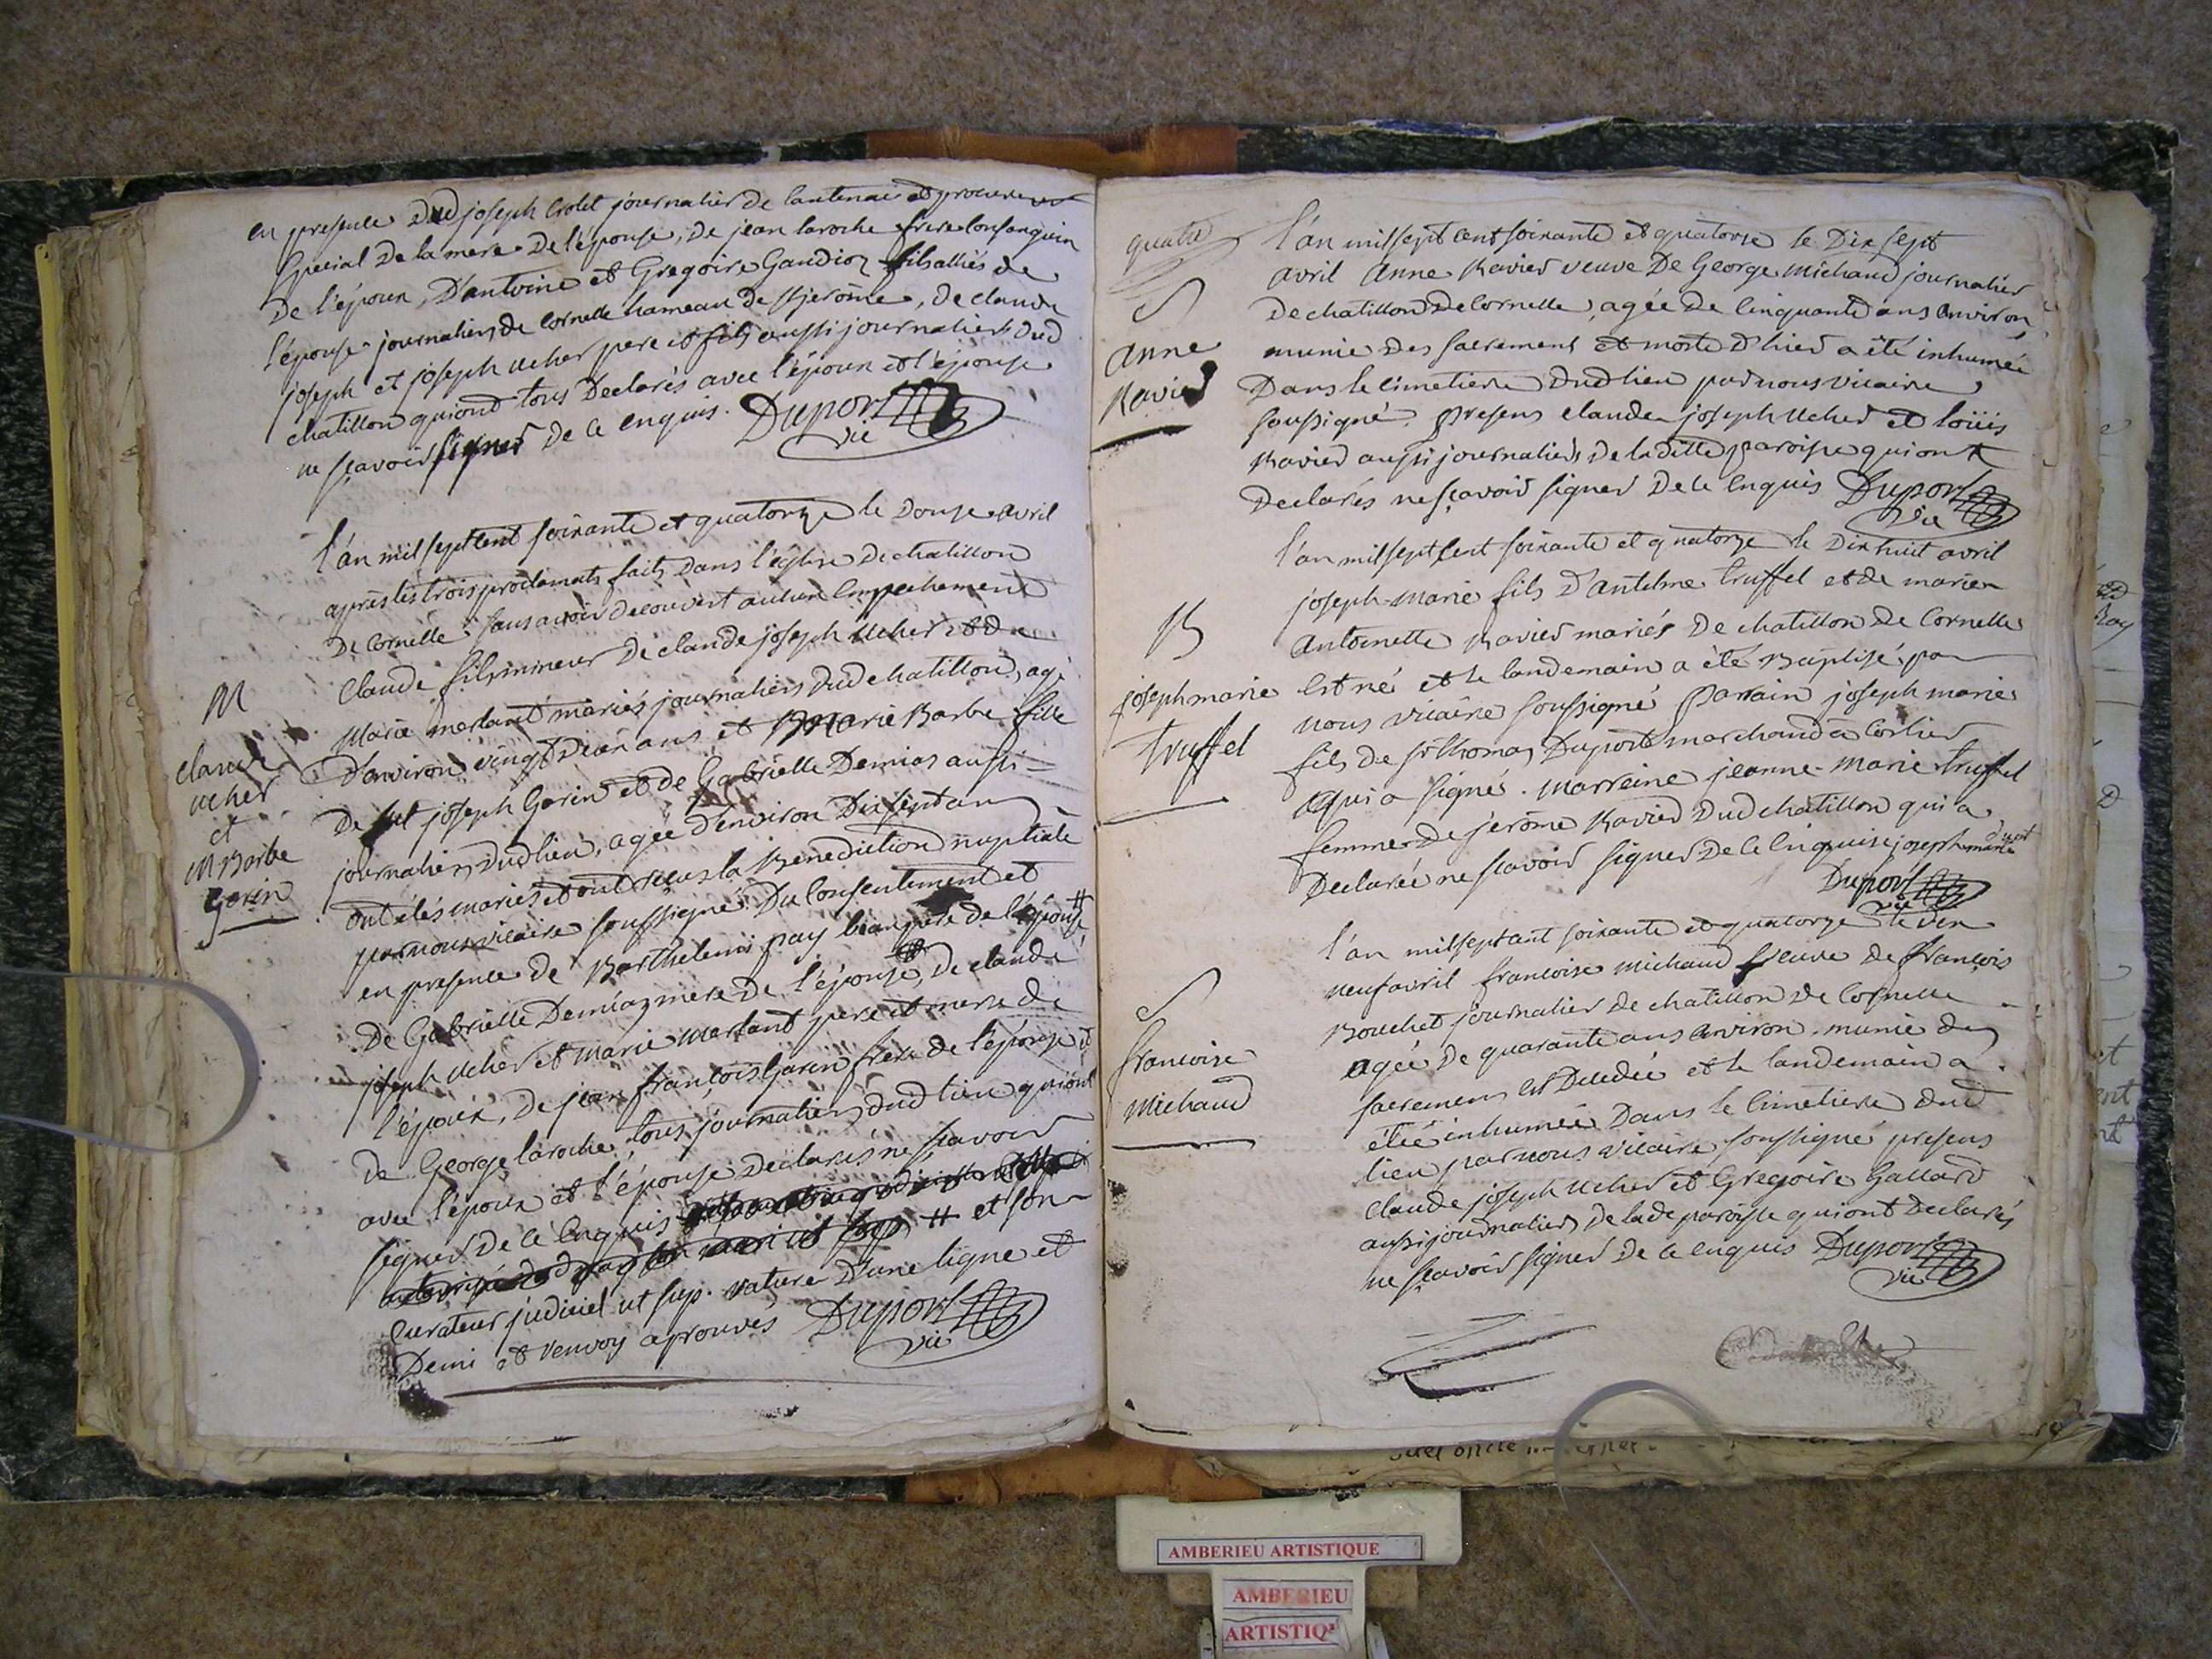 en presence dud joseph Crolet journalier de lantenai et procureur
special de la mere de l'épouse, de jean laroche frere consanguin
de l'époux, d'antoine et Gregoire Gaudioz alliés de
l'épouse journaliers de Cornelle hameau de st jerôme, de claude
joseph et joseph ucher pere et fils aussi journaliers dud
chatillon qui ont tous declarés avec l'époux et l'épouse
ne sçavoir signer de ce enquis. Duport
vic
l'an mil sept cent soixante et quatorze le douze avril
après les trois proclamats faits dans l'église de chatillon
de Cornelle sans avoir decouvert aucun empechement
M
Claude fils mineur de claude joseph ucher et de
Marie merlant mariés journaliers dud chatillon, agé
claude
ucher
et
M Barbe
Gorin
d'environ vingt deux ans et Marie Barbe fille
de fut joseph Gorin et de Gabrielle Demias aussi
journaliers dud lieu, agée d'environ dix sept ans
ont étés mariés et ont reçus la Benediction nuptiale
par nous vicaire soussigné du consentement et
en presence de Barthelemi pay beaupere de l'épouse #
de Gabrielle Demiaz mere de l'épouse, de claude
joseph ucher et marie merlant pere et mere de
l'époux, de jean françois Gorin frere de l'épouse et
de George laroche, tous journaliers dud lieu qui ont
avec l'époux et l'épouse declarés ne sçavoir
signer de ce enquis
# et son
curateur judiciel ut sup. rature d'une ligne et
demi et renvoy aprouvés Duport
vic
quatre
l'an mil sept cent soixante et quatorze le dix sept
avril anne Ravier veuve de George michaud journalier
S
anne
Ravier
de chatillon de Cornelle, agée de cinquante ans environ
munie des sacremens et morte d'hier a été inhumée
dans le cimetiere dud lieu par nous vicaire
soussigné. presens claude joseph ucher et loüis
Ravier aussi journaliers de la ditte paroisse qui ont
declarés ne sçavoir signer de ce enquis Duport
vic
l'an mil sept cent soixante et quatorze le dix huit avril
joseph-marie fils d'antelme truffel et de marie
B
joseph marie
truffel
antoinette Ravier mariés de chatillon de Cornelle
est né et le landemain a été Baptisé par
nous vicaire soussigné parrain joseph marie
fils de sr thomas Duport marchand à Corlier
qui a signé. marraine jeanne-marie truffel
femme de jerôme Ravier dud chatillon qui a
declarée ne sçavoir signer de ce enquise joseph marie duport
Duport
vic
l'an mil sept cent soixante et quatorze le dix
neuf avril francoise michaud veuve de françois
S
francoise
michaud
Bouchet journalier de chatillon de Cornelle
agée de quarante ans environ. munie des
sacremens est decedée et le landemain a
étée inhumée dans le cimetiere dud
lieu par nous vicaire soussigné presens
claude joseph ucher et Gregoire Gallard
aussi journaliers de lade paroisse qui ont declarés
ne sçavoir signer de ce enquis Duport
vic
AMBERIEU ARTISTIQUE
AMBERIEU
ARTISTIQ